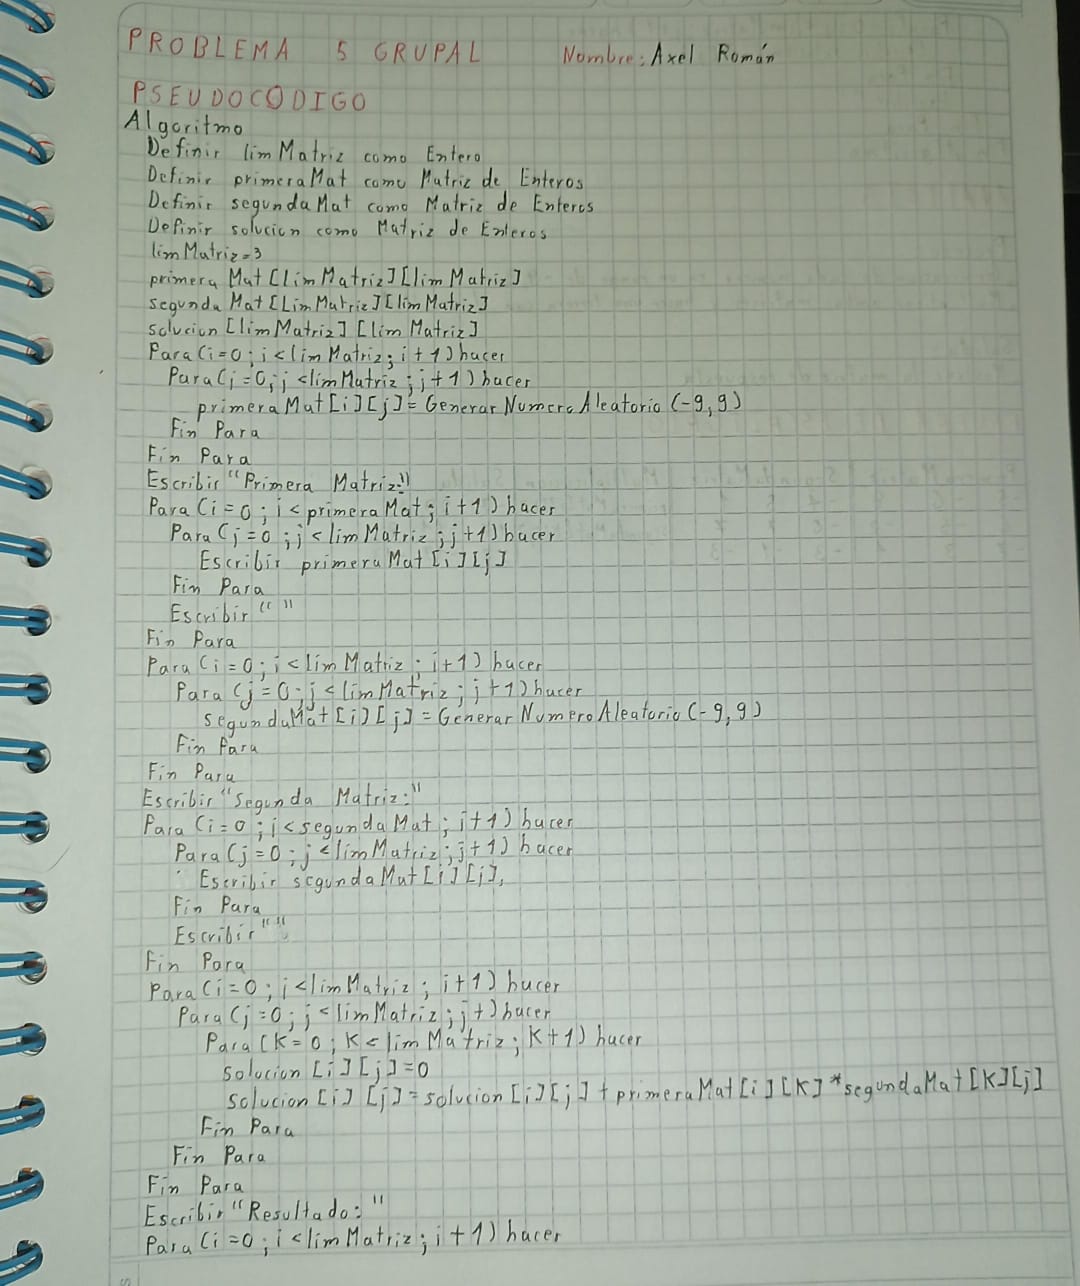 PROBLEMA 5 GRUPAL Nombre: Axel Román
PSEUDOCODIGO
Algoritmo
Definir limMatriz como Entero
Definir primeraMat como Matriz de Enteros
Definir segundaMat como Matriz de Enteros
Definir solucion como Matriz de Enteros
limMatriz=3
primeraMat[limMatriz][limMatriz]
segundaMat[LimMatriz][limMatriz]
solucion[limMatriz][limMatriz]
Para(i=0;i<limMatriz;i+1)hacer
Para(j=0;j<limMatriz;j+1)hacer
primeraMat[i][j]=GenerarNumeroAleatorio(-9,9)
Fin Para
Fin Para
Escribir"Primera Matriz:"
Para(i=0;i<primeraMat;i+1)hacer
Para(j=0;j<limMatriz;j+1)hacer
Escribir primeraMat[i][j]
Fin Para
Escribir" "
Fin Para
Para(i=0;i<limMatriz;i+1)hacer
Para(j=0;j<limMatriz;j+1)hacer
segundaMat[i][j]=GenerarNumeroAleatorio(-9,9)
Fin Para
Fin Para
Escribir"Segunda Matriz:"
Para(i=0;i<segundaMat;i+1)hacer
Para(j=0;j<limMatriz;j+1)hacer
Escribir segundaMat[i][j],
Fin Para
Escribir""
Fin Para
Para(i=0;i<limMatriz;i+1)hacer
Para(j=0;j<limMatriz;j+)hacer
Para(K=0;K<limMatriz;K+1)hacer
solucion[i][j]=0
solucion[i][j]=solucion[i][j]+primeraMat[i][K]*segundaMat[K][j]
Fin Para
Fin Para
Fin Para
Escribir"Resultado:"
Para(i=0;i<limMatriz;i+1)hacer